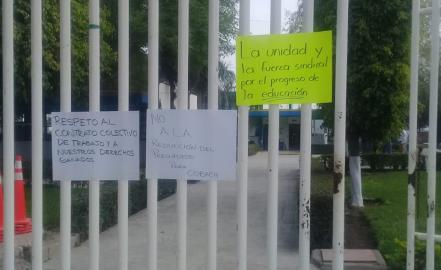 RESPETO AL
CONTRATO COLECTIVO
DE TRABAJO Y A
NUESTROS DERECHOS
GANADOS
NO
A LA
REDUCCION DEL
PRESUPUESTO
PARA
COBACH
La unidad y
la fuerza sindical
por el progreso de
la educación